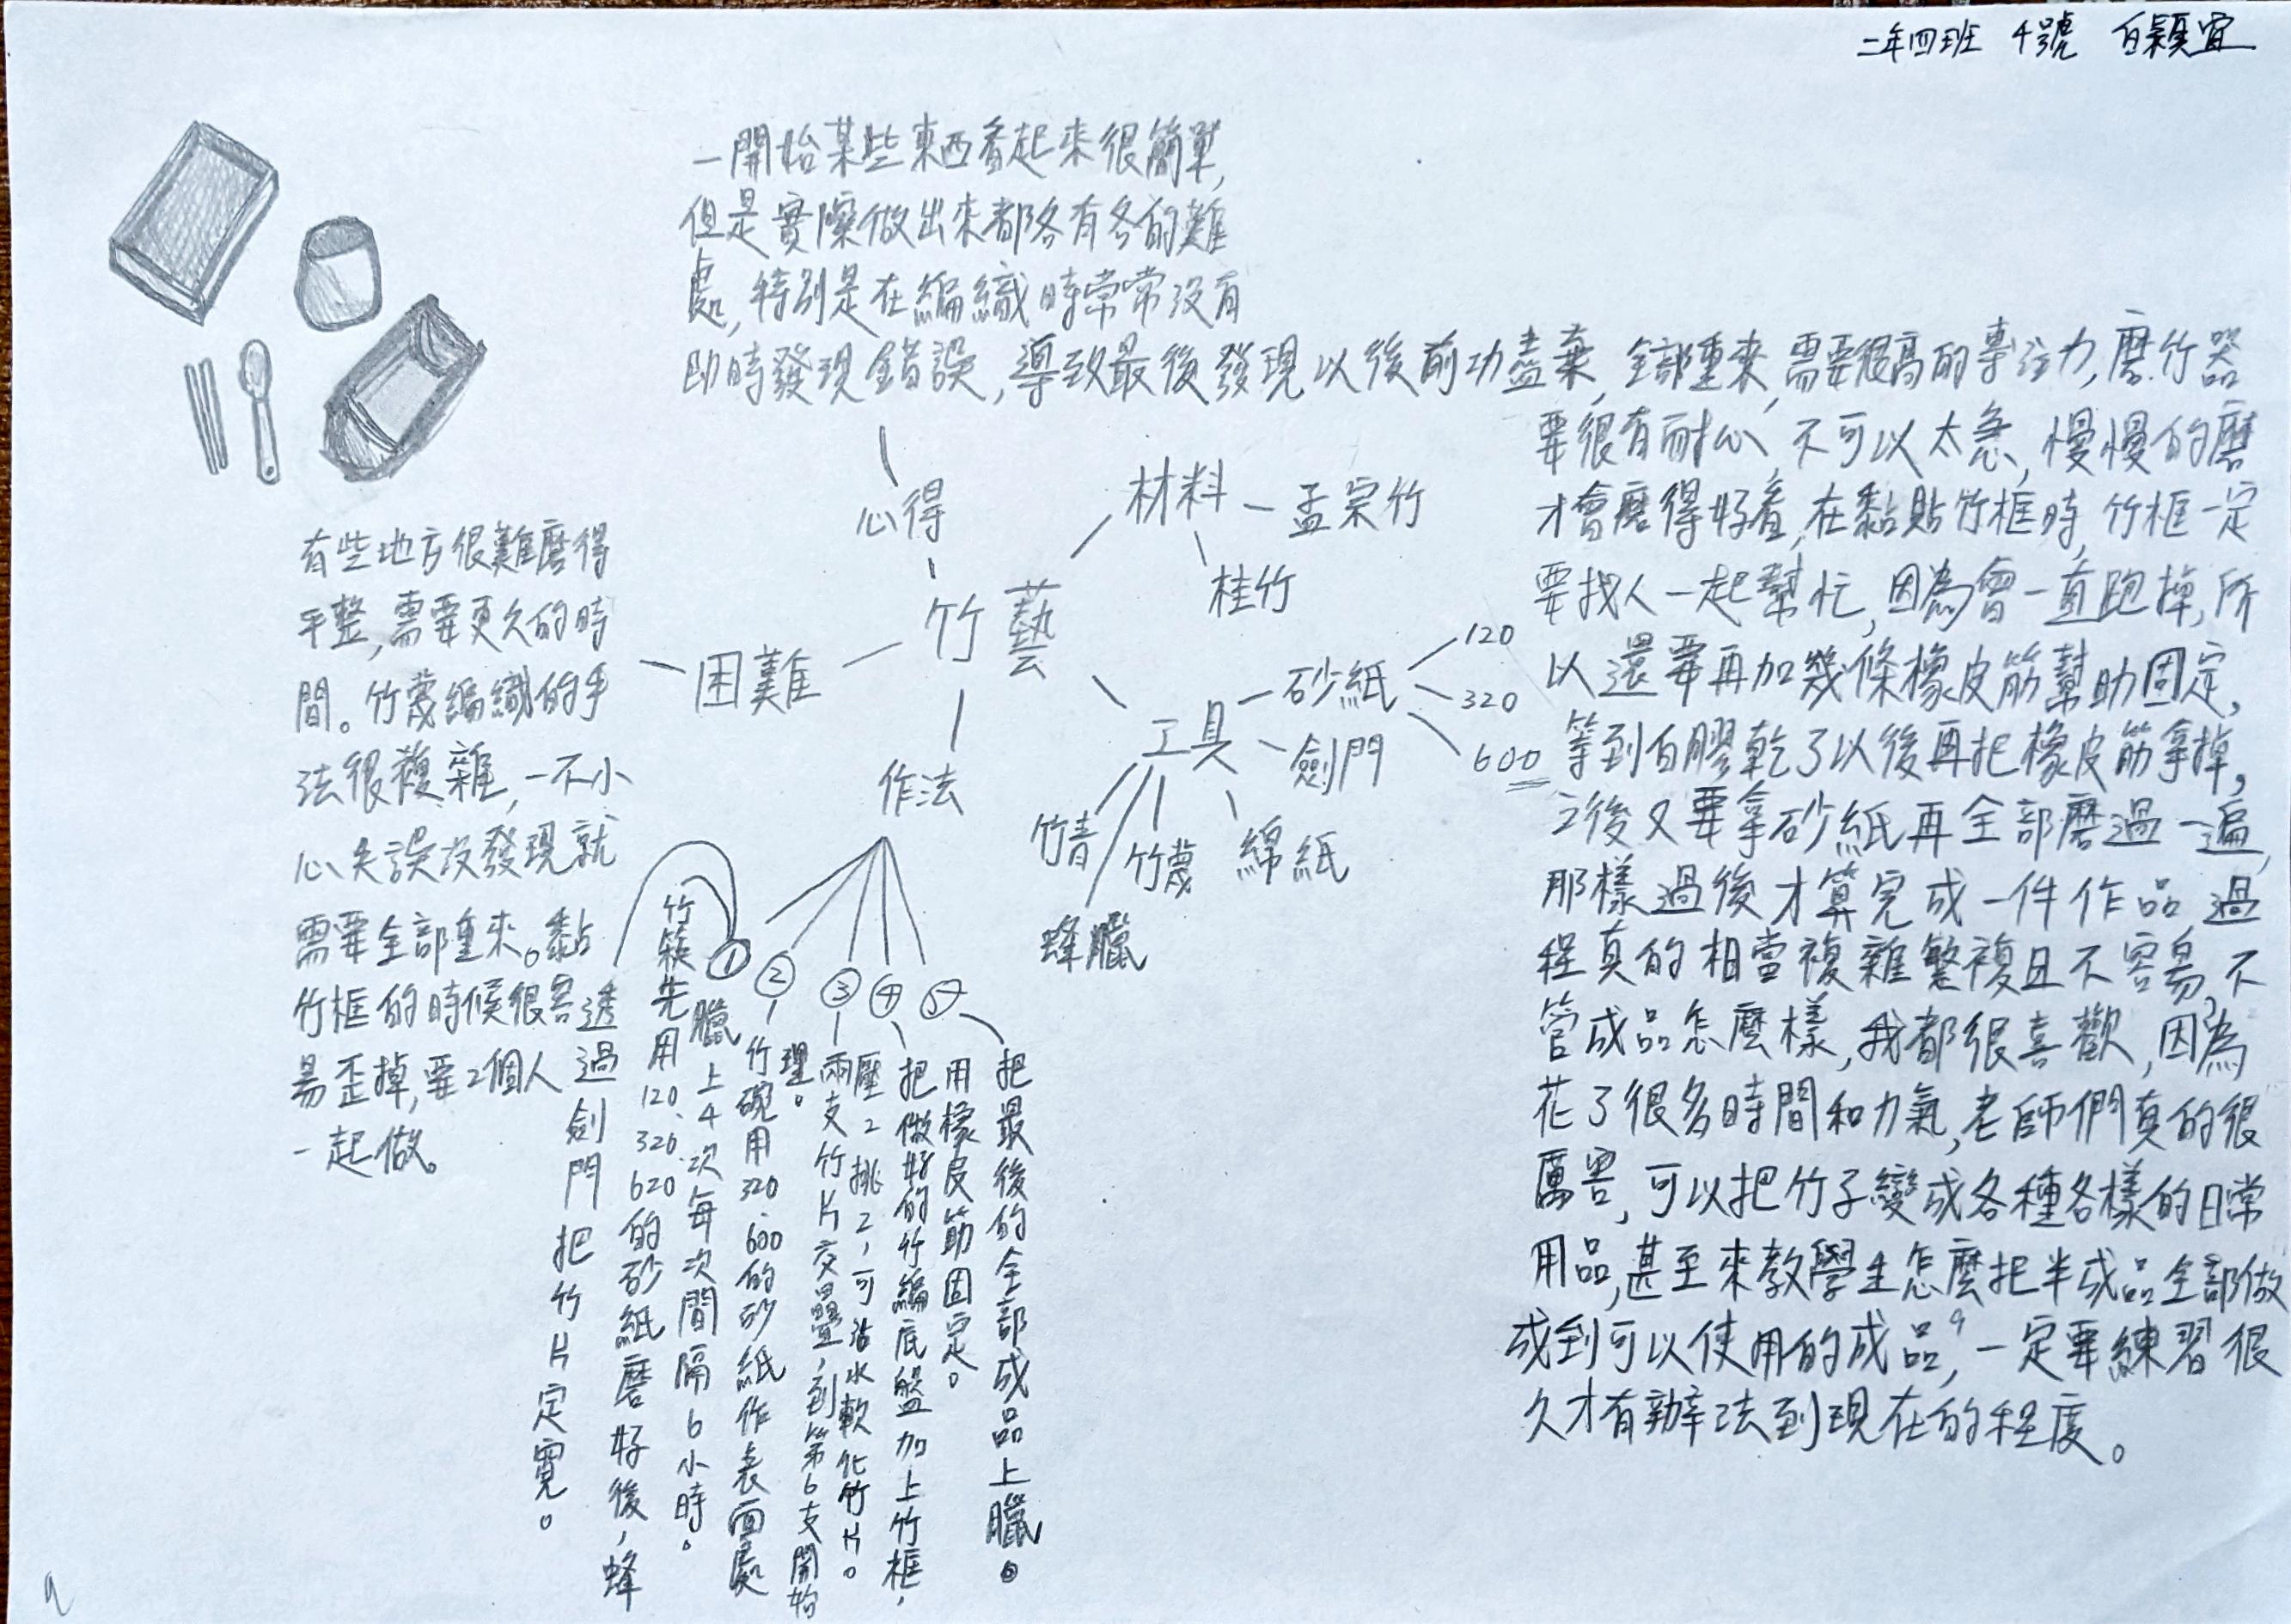 二年四班 4號 白穎宜
一開始某些東西看起來很簡單,
但是實際做出來都各有各的難
處,特別是在編織時常常沒有
即時發現錯誤,導致最後發現以後前功盡棄,全部重來,需要很高的專注力,磨竹器
要很有耐心、不可以太急,慢慢的磨
才會磨得好看,在黏貼竹框時,竹框一定
要找人一起幫忙,因為會一直跑掉,所
以還要再加幾條橡皮筋幫助固定,
等到白膠乾了以後再把橡皮筋拿掉,
之後又要拿砂紙再全部磨過一遍,
那樣過後才算完成一件作品,過
程真的相當複雜繁複且不容易,不
管成品怎麼樣,我都很喜歡,因為
花了很多時間和力氣,老師們真的很
厲害,可以把竹子變成各種各樣的日常
用品,甚至來教學生怎麼把半成品全部做
成到可以使用的成品,一定要練習很
久才有辦法到現在的程度。
心得
竹藝
材料
孟宗竹
桂竹
工具
砂紙
120
320
600
劍門
綿紙
竹篾
蜂臘
竹青
困難
有些地方很難磨得
平整,需要更久的時
間。竹篾編織的手
法很複雜,一不小
心失誤沒發現就
需要全部重來。黏
竹框的時候很容
易歪掉,要2個人
一起做。
作法
①
竹筷先用120、320、620的砂紙磨好後,蜂
臘上4次每次間隔6小時。
透過劍門把竹片定寬。
②
竹碗用320、600的砂紙作表面處
理。
③
兩支竹片交疊,到第6支開始
壓2挑2,可沾水軟化竹片。
④
把做好的竹編底盤加上竹框,
用橡皮筋固定。
⑤
把最後的全部成品上臘。